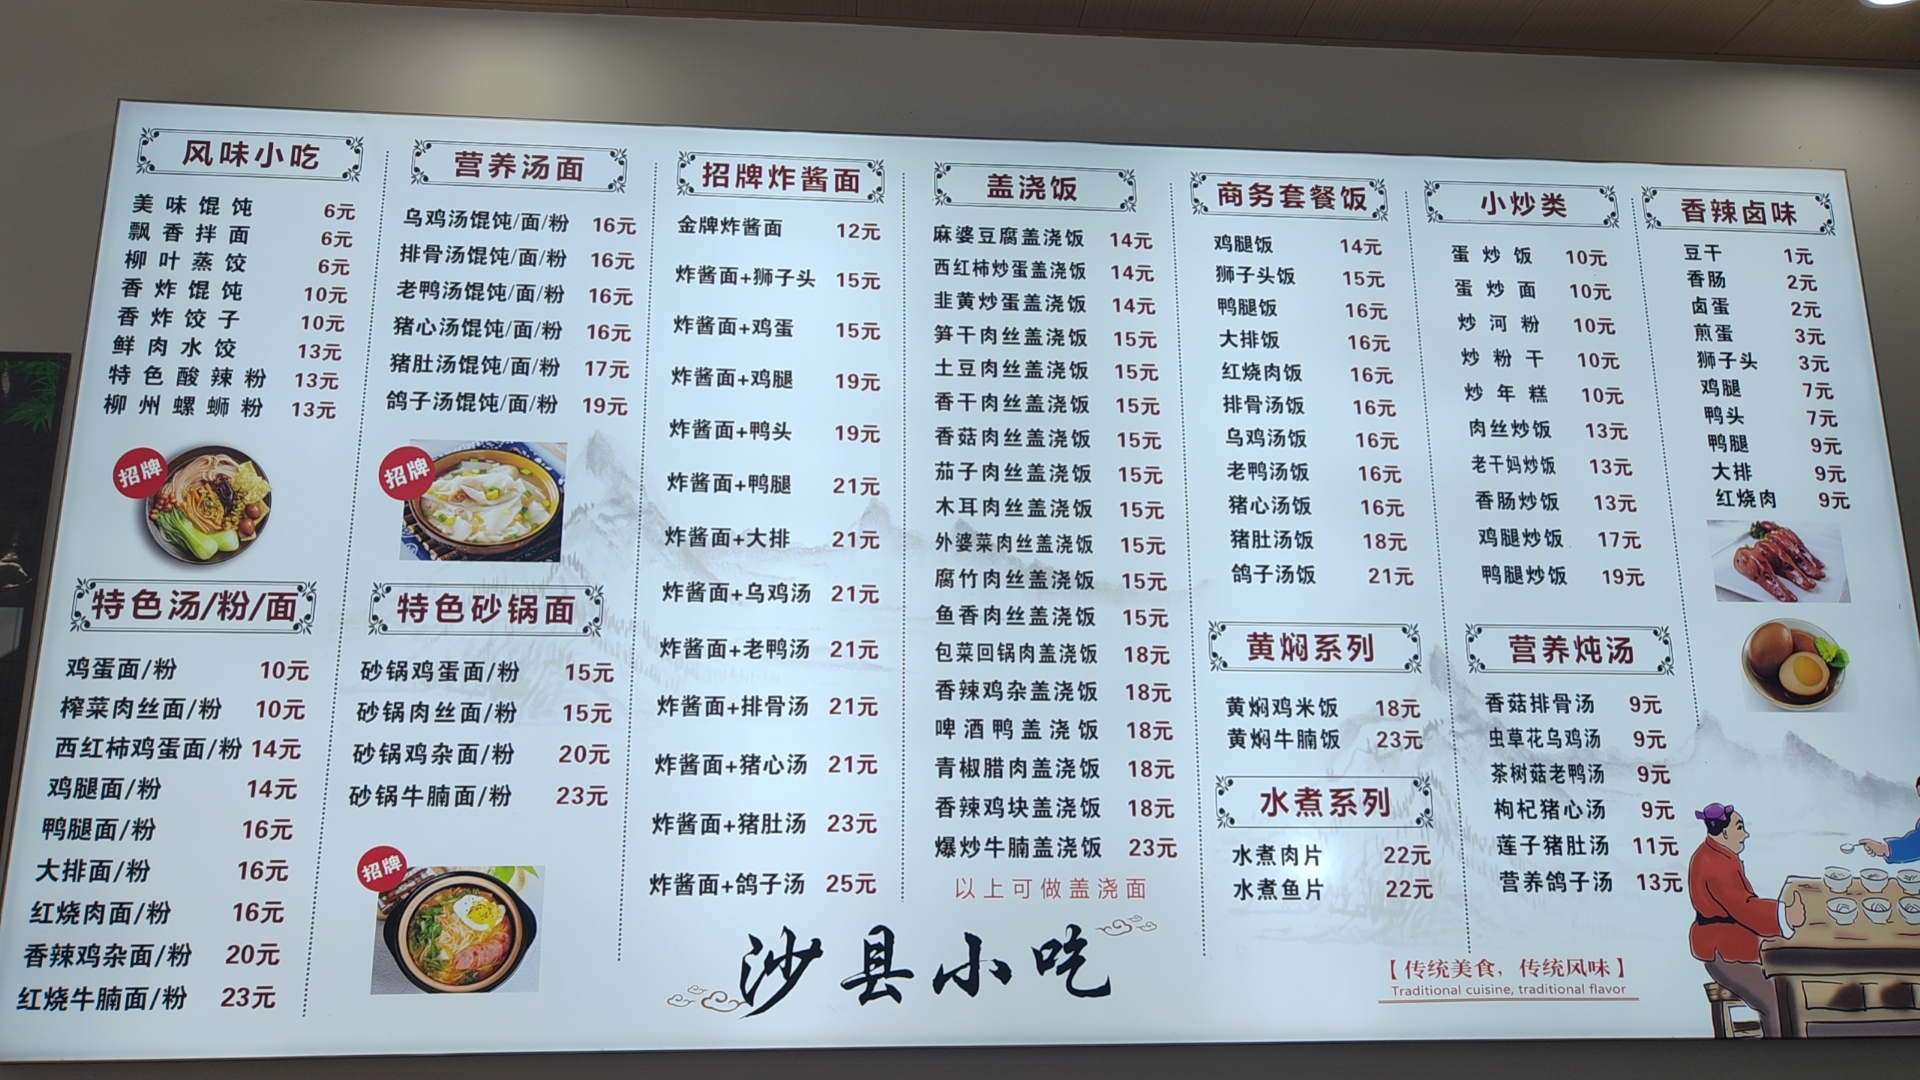 风味小吃
美味馄饨 6元
飘香拌面 6元
柳叶蒸饺 6元
香炸馄饨 10元
香炸饺子 10元
鲜肉水饺 13元
特色酸辣粉 13元
柳州螺蛳粉 13元
招牌
特色汤/粉/面
鸡蛋面/粉 10元
榨菜肉丝面/粉 10元
西红柿鸡蛋面/粉 14元
鸡腿面/粉 14元
鸭腿面/粉 16元
大排面/粉 16元
红烧肉面/粉 16元
香辣鸡杂面/粉 20元
红烧牛腩面/粉 23元
营养汤面
乌鸡汤馄饨/面/粉 16元
排骨汤馄饨/面/粉 16元
老鸭汤馄饨/面/粉 16元
猪心汤馄饨/面/粉 16元
猪肚汤馄饨/面/粉 17元
鸽子汤馄饨/面/粉 19元
招牌
特色砂锅面
砂锅鸡蛋面/粉 15元
砂锅肉丝面/粉 15元
砂锅鸡杂面/粉 20元
砂锅牛腩面/粉 23元
招牌
招牌炸酱面
金牌炸酱面 12元
炸酱面+狮子头 15元
炸酱面+鸡蛋 15元
炸酱面+鸡腿 19元
炸酱面+鸭头 19元
炸酱面+鸭腿 21元
炸酱面+大排 21元
炸酱面+乌鸡汤 21元
炸酱面+老鸭汤 21元
炸酱面+排骨汤 21元
炸酱面+猪心汤 21元
炸酱面+猪肚汤 23元
炸酱面+鸽子汤 25元
盖浇饭
麻婆豆腐盖浇饭 14元
西红柿炒蛋盖浇饭 14元
韭黄炒蛋盖浇饭 14元
笋干肉丝盖浇饭 15元
土豆肉丝盖浇饭 15元
香干肉丝盖浇饭 15元
香菇肉丝盖浇饭 15元
茄子肉丝盖浇饭 15元
木耳肉丝盖浇饭 15元
外婆菜肉丝盖浇饭 15元
腐竹肉丝盖浇饭 15元
鱼香肉丝盖浇饭 15元
包菜回锅肉盖浇饭 18元
香辣鸡杂盖浇饭 18元
啤酒鸭盖浇饭 18元
青椒腊肉盖浇饭 18元
香辣鸡块盖浇饭 18元
爆炒牛腩盖浇饭 23元
以上可做盖浇面
沙县小吃
商务套餐饭
鸡腿饭 14元
狮子头饭 15元
鸭腿饭 16元
大排饭 16元
红烧肉饭 16元
排骨汤饭 16元
乌鸡汤饭 16元
老鸭汤饭 16元
猪心汤饭 16元
猪肚汤饭 18元
鸽子汤饭 21元
黄焖系列
黄焖鸡米饭 18元
黄焖牛腩饭 23元
水煮系列
水煮肉片 22元
水煮鱼片 22元
小炒类
蛋炒饭 10元
蛋炒面 10元
炒河粉 10元
炒粉干 10元
炒年糕 10元
肉丝炒饭 13元
老干妈炒饭 13元
香肠炒饭 13元
鸡腿炒饭 17元
鸭腿炒饭 19元
营养炖汤
香菇排骨汤 9元
虫草花乌鸡汤 9元
茶树菇老鸭汤 9元
枸杞猪心汤 9元
莲子猪肚汤 11元
营养鸽子汤 13元
香辣卤味
豆干 1元
香肠 2元
卤蛋 2元
煎蛋 3元
狮子头 3元
鸡腿 7元
鸭头 7元
鸭腿 9元
大排 9元
红烧肉 9元
【传统美食，传统风味】
Traditional cuisine, traditional flavor